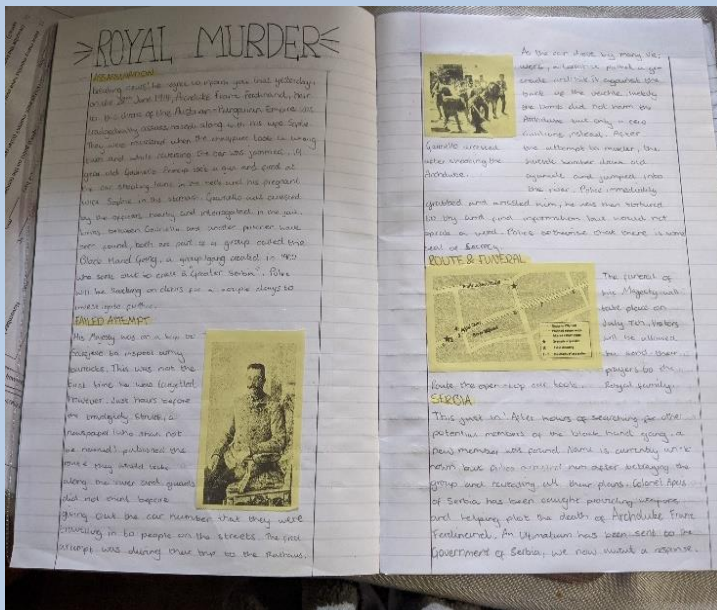 ROYAL MURDER
ASSASSINATION
Breaking news! We regret to inform you that yesterday,
on the 28th June 1914, Archduke Franz Ferdinand, heir
to the throne of the Austrian-Hungarian Empire was
assassinated along with his wife Sophie.
They were assassinated when the chauffeur took a wrong
turn and while reversing the car was jammed. 19
year old Gavrillo Princip drew a gun and fired at
the car shooting Franz in the neck and his pregnant
wife Sophie in the stomach. Gavrillo was arrested
by the officers nearby and interrogated in the jail.
Links between Gavrillo and another prisoner have
been found, both are part of a group called the
Black Hand Gang, a group created in
who sent out to create a "Greater Serbia". Police
will be tracking on clues for a couple days to
investigate further.
FAILED ATTEMPT
His Majesty was on a trip to
Sarajevo to inspect army
barracks. This was not the
first time he was targeted
however. Just hours before
the tragedy struck, a
newspaper (who shall not
be named) published the
route they would take
along the river and guards
did not think before
giving out the car number that they were
travelling in to people on the streets. The first
attempt was during their trip to the Rathaus.
As the car drove by many
were, a terrorist pulled a
grenade and hit it against the
back of the vehicle, luckily
the bomb did not harm the
Archduke but only a few
civilians, instead. After
the attempt to murder, the
suicide bomber drank old
cyanide and jumped into
the river. Police immediately
Gavrillo arrested
after shooting the
Archduke.
grabbed and arrested him, he was then tortured
to try and find information but would not
speak a word. Police estimate that there is some
seal of secrecy.
ROUTE & FUNERAL
The funeral of
his Majesty will
take place on
July 7th. Visitors
will be allowed
to send their
prayers to the
Royal family.
Route the open-top car took.
SERBIA
This just in! After hours of searching for other
potential members of the black hand gang, a
new member was found. Name is currently unk
nown but police arrested him after betraying the
group and revealing all their plans. Colonel Apis
of Serbia has been caught providing weapons
and helping plot the death of Archduke Franz
Ferdinand. An Ultimatum has been sent to the
Government of Serbia, we now await a response.